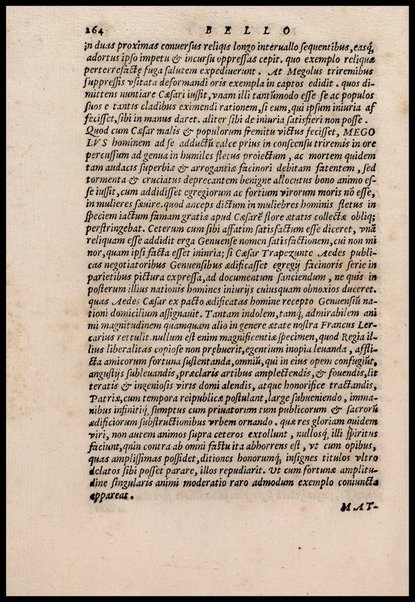 264 BELLO
in duas proximas conuersus reliqis longo interuallo sequentibus, easq́,
adortus ipso impetu & incursu oppressas cepit. quo exemplo reliquæ
perterrefactæ fuga salutem expediuerunt. At Megolus triremibus
suppressis visitata deformandi oris exempla in captos edidit. quos di-
mittens nuntiare Cæsari iussit, vnam illi tantūmodo esse se ac populos
suos e tantis cladibus eximendi rationem, si eum, qui ipsum iniuria af
fecisset, sibi in manus daret. aliter sibi de iniuria satisfieri non posse.
Quod cum Cæsar malis & populorum fremitu victus fecisset, MEGO
LVS hominem ad se adductū calce prius in conscensu triremis in ore
percussum ad genua in humiles fletus proiectum, ac mortem quidem
tam audacis superbiæ & arrogantiæ facinori debitam fatentem, sed
tormenta & cruciatus deprecantem benigne allocutus bono animo es-
se iussit, cum addidisset egregiorum ac fortium virorum moris nō esse,
in mulieres sæuire. quod anceps dictum in muliebres hominis fletus in
speciem iactum famam gratiæ apud Cæsarē flore ætatis collectæ obliq;
perstringebat. Ceterum cum sibi affatim satisfactum esse diceret, vnā
reliquam esse addidit erga Genuense nomen satisfactionem, cui non mi
nor, quam ipsi facta esset iniuria; si Cæsar Trapezunte Aedes publi-
cas negotiatoribus Genuensibus ædificasset egregij facinoris serie in
parietibus pictura expressa, ad documentum sanciendum, ne quis in
posterum illius nationis homines iniurijs cuiusquam obnoxios duceret.
quas Aedes Cæsar ex pacto ædificatas homine recepto Genuensiū na
tioni domicilium assignauit. Tantam indolem, tamq́, admirabilem ani
mi magnitudinem quamquam alio in genere ætate nostra Francus Ler-
carius rettulit. nullum est enim magnificentiæ specimen, quod Regia il-
lius liberalitas copiose non præbuerit, egentium inopia leuanda, affli-
cta amicorum fortuna sustentanda, omniū, qui in eius opem confugiūt,
angustijs subleuandis, præclaris artibus amplectendis, & fouendis, lit
teratis & ingeniosis viris domi alendis, atque honorifice tractandis,
Patriæ, cum tempora reipublicæ postulant, large subueniendo, imma-
nibus infinitisq́; sumptus cum priuatorum tum publicorum & sacrorū
ædificiorum substructionibus vrbem ornando. quæ res gloriam quidem
viri, non autem animos supra ceteros extollunt, nullosq́, illi spiritus
faciunt, quin contra ab omni fastu ita abhorrens est, vt cum opibus,
quas amplissimas possidet, ditiones honorumq́, insignes titulos vltro
delatos sibi posset parare, illos repudiarit. Vt cum fortunæ amplitu-
dine singularis animi moderatio raro admodum exemplo coniuncta
appareat.
MAT-